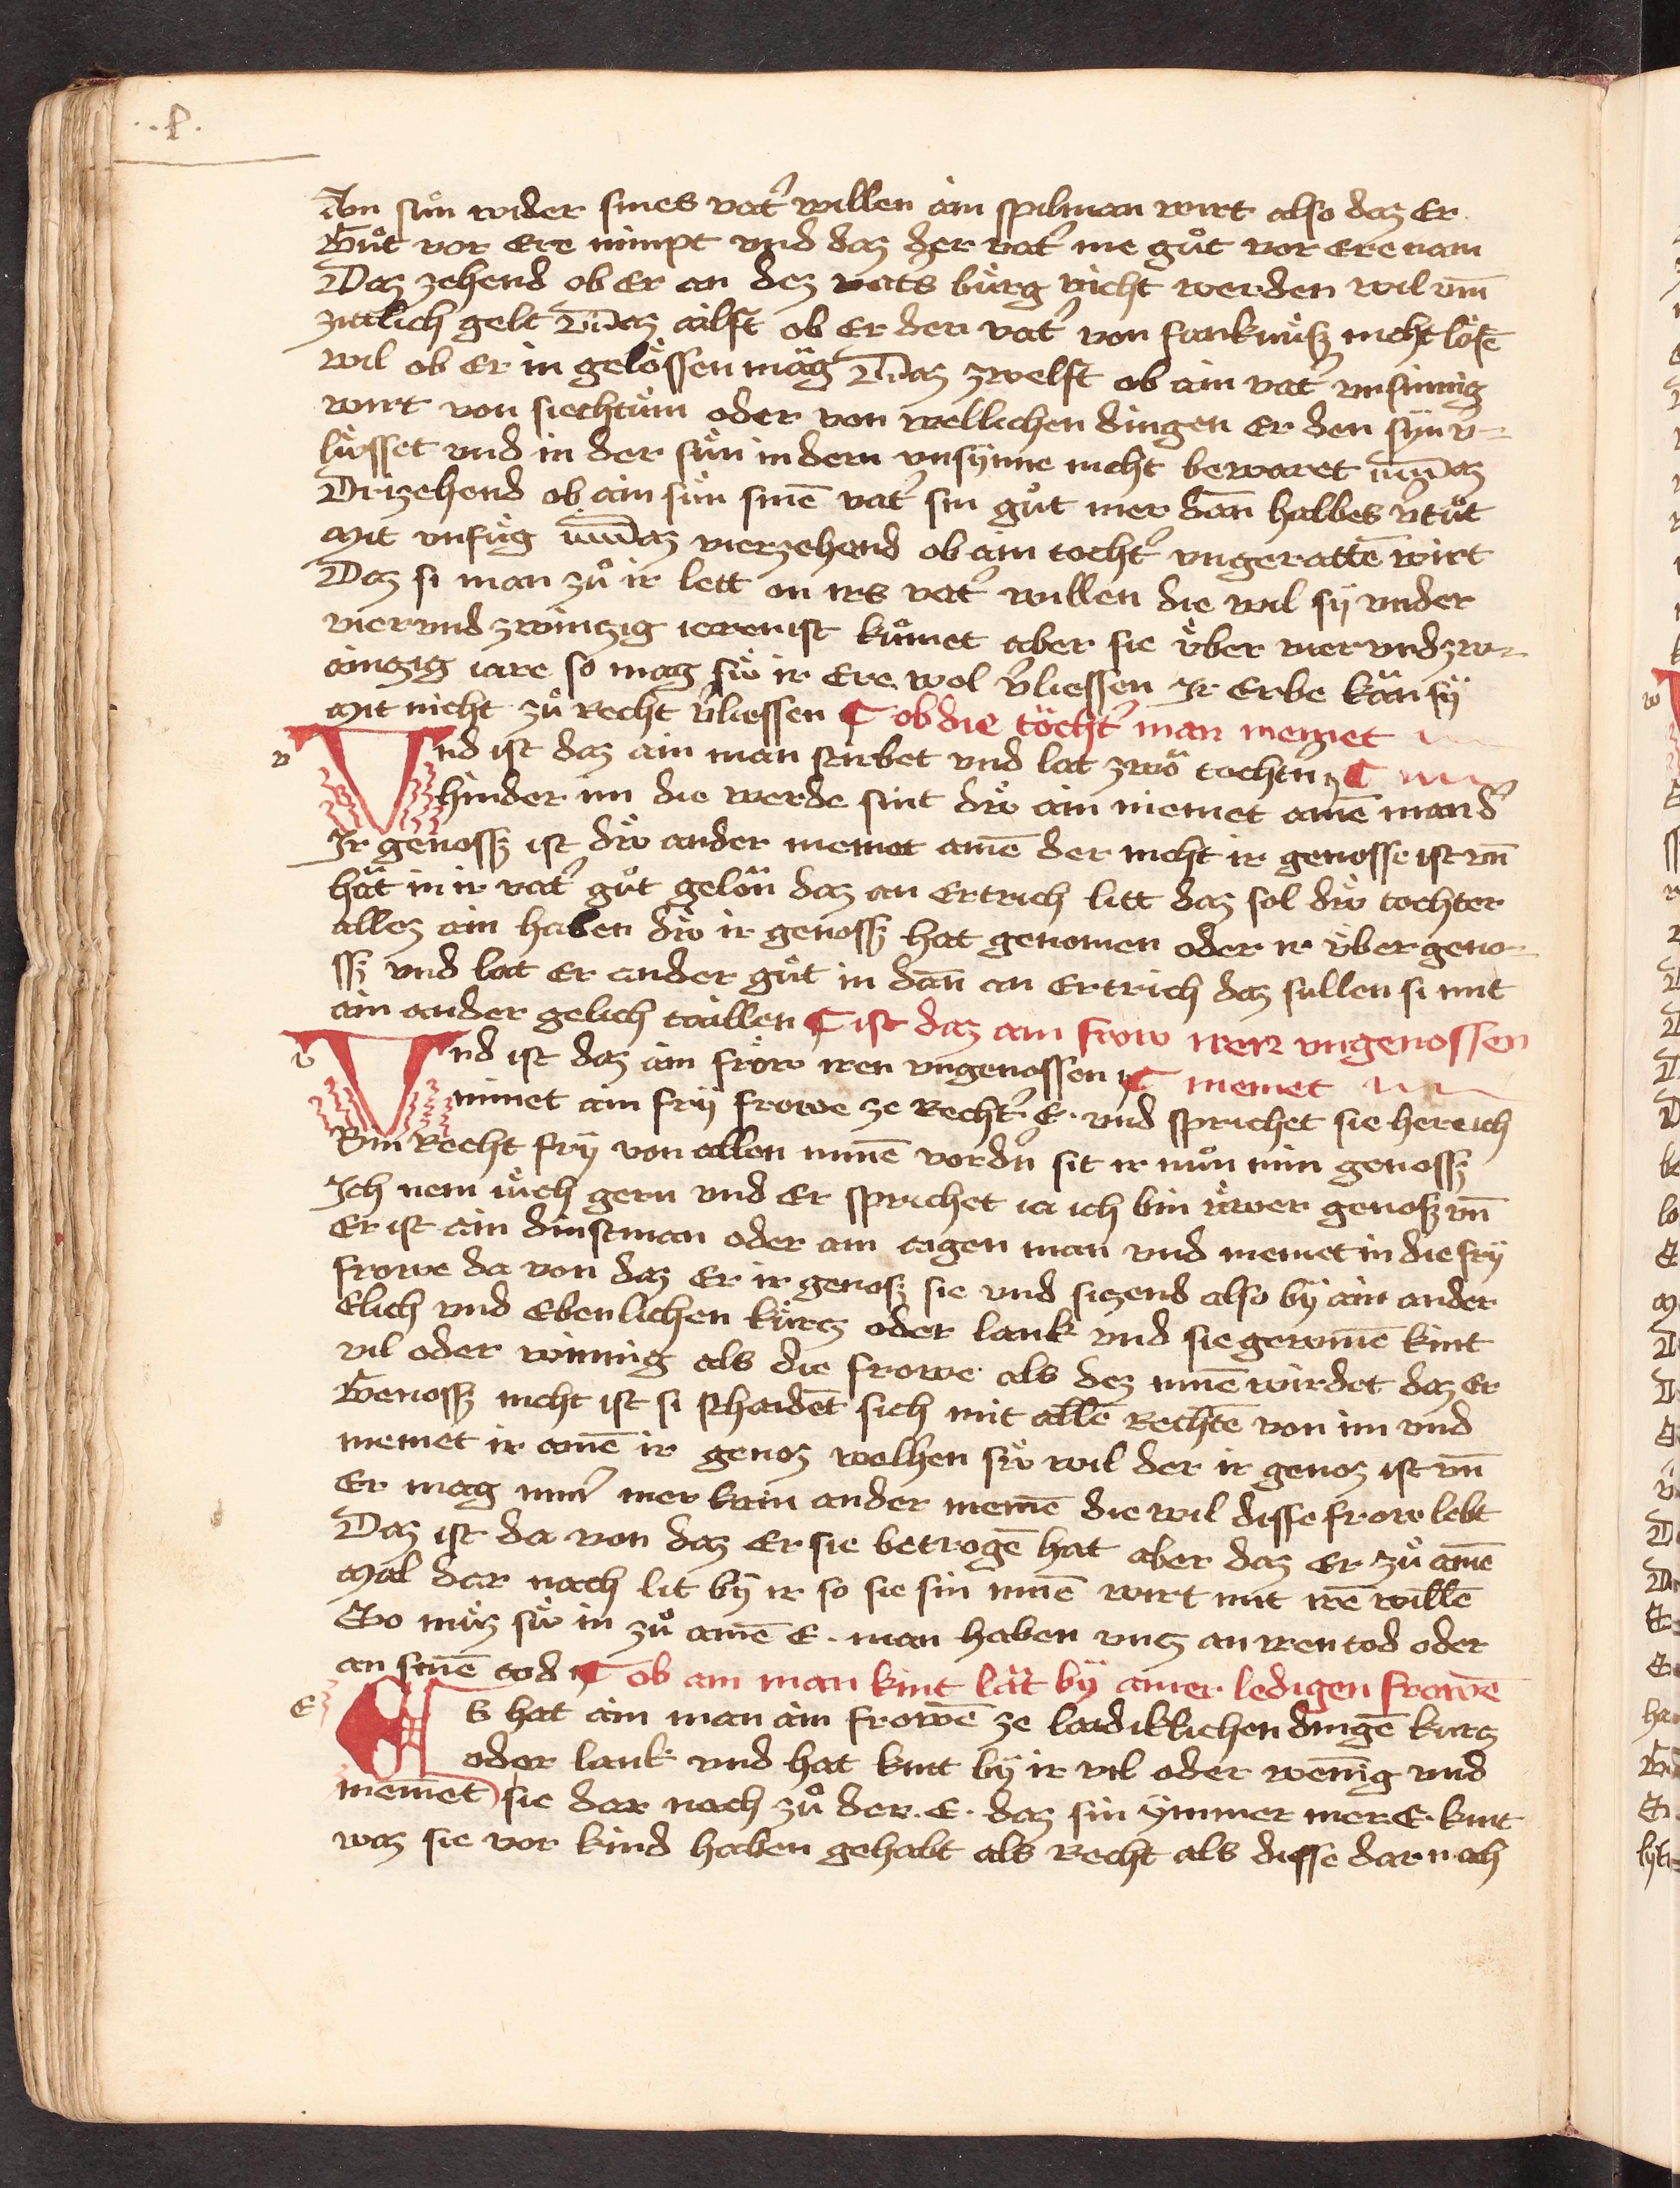 ain sün wider sines vat̓ willen ain spilman wirt also daz Er
Gůt vor Ere nimpt vnd daz der vat̓ nie gůt vor Ere nam
Daz zehend ob Er an dez vats bürg nicht werden wil vm̄
zitlich gelt Daz ailft ob Er den vat̓ von fanknüsz nicht lösē
wil ob Er in gelössen mäg Daz zwelft ob ain vat̓ vnsinnig
wirt von siechtům oder von wellichen dingen Er den syn v-
lüsset vnd in der sün in dem vnsynne nicht bewaret daz
Drizehend ob ain sün sinē vat̓ sin gůt mer dan̄ halbes v̓tůt
Mit vnfůg daz vierzehend ob ain tocht̓ vngerattē wirt
Daz si man zů ir lett on irs vat̓ willen die wil sÿ vnder
vier vnd zwinzig iaren ist kůmet aber sie über vier vnd zw-
ainzig iare so mag sü ir Ere wol v̓liessen Ir Erbe kan sÿ
Mit nicht zů Recht v̓liessen ¶ ob die töcht̓ man niemet
v Vnd ist daz ain man stirbet vnd lat zwö tochtn̓ ¶
hinder im die werde sint dü ain niemet ainē man d̓
Ir genossz ist dü ander niemet ainē der nicht ir genosse ist vn̄
hät in ir vat̓ gůt gelön daz an Ertrich litt daz sol dü tochter
allez ain haben dü ir genossz hat genomen oder ir übergeno-
ssz vnd lat Er ander gůt in dan̄ an Ertrich daz sullen si mit
ain ander gelich taillen ¶ ist daz ain frow iren vngenossen
v Vnd ist daz ain fröw iren vngenossen ¶ niemet
nimet ain frÿ frowe ze Recht̓ E. vnd sprichet sie here ich
Bin Recht frÿ von allen minē vordn̓ sit ir nůn min genossz
Ich nem üch gern vnd Er sprichet ia ich bin üwer genosz vn̄
Er ist ain dinstman oder ain aigen man vnd niemet in die frÿ
frowe da von daz Er ir genosz sie vnd sizend also bÿ ain ander
Elich vnd Ebenlichen kürcz oder lank vnd sie gewinnē kint
vil oder winnig als die frowe als dez innē wirdet daz Er
Genossz nicht ist si schaidet sich mit allē Rechtē von im vnd
niemet ir ainē ir genoz wolhen sü wil der ir genoz ist vn̄
Er mag nim̓ mer kain ander niemē die wil disse frow lebt
Daz ist da von daz Er sie betrogē hat aber daz Er zů ainē
Mal dar nach lit bÿ ir so sie sin innē wirt mit irē willē
So můz sü in zů ainē E. man haben vncz an iren tod oder
an sinē tod ¶ ob ain man kint lät bÿ ainer ledigen frowē
E Es hat ain man ain frowē ze ladiklichen dingē kurcz
oder lank vnd hat kint bÿ ir vil oder wenīg vnd
niemet sie dar nach zů der .E. daz sin ÿmmer mer .E. kint
waz sie vor kind haben gehabt als Recht als diesse dar nach